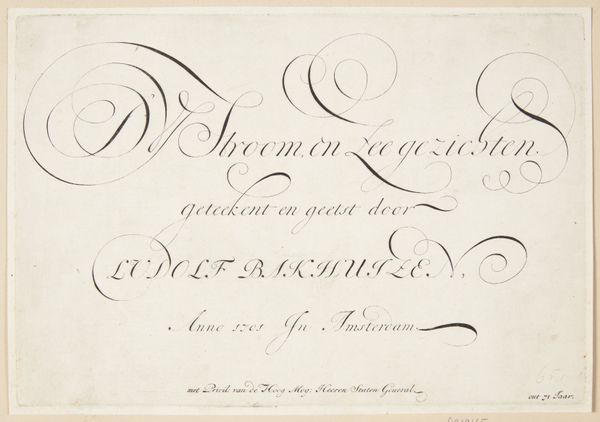 D'Y Stroom, en Zee gezichten,
geteekent en geetst door
LUDOLF BAKHUIZEN,
Anno 1701 In Amsterdam
met Privil: van de Hoog Mog: Heeren Staten General.
out 71 Jaar.